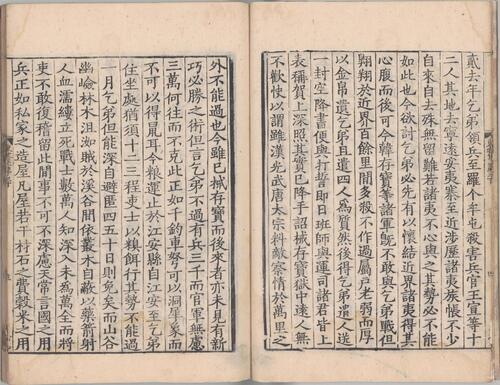 貳去年乞弟領兵至羅个牟屯殺害兵官王宣等十
二人其地去寧遠安夷寨至近涉歷諸夷族帳不少
自來自去殊無留難若諸夷不心與之其勢必不能
如此也今欲討乞弟必先有以懷結近界諸夷得其
心腹而後可今韓存寶等諸軍旣不敢與乞弟戰但
翱翔於近界百餘里間多殺不作過屬戶老弱而厚
以金帛遺乞弟且遣四人爲質然後得乞弟遣人送
一封空降書便與打誓即日班師與運司諸君皆上
表稱賀上深照其實已降手詔械存寶獄中遠人無
不歡快以謂雖漢光武唐太宗料敵察情於萬里之
外不能過也今雖已械存寶而後來者亦未見有新
巧必勝之術但言乞弟不過有兵三千而官軍無慮
三萬何往而不克此正如千鈞車弩可以洞犀象而
不可以得鼠耳今糧運止於江安縣自江安至乞弟
住坐處猶須十二三程吏士以糗餌行其勢不能過
一月乞弟但能深自避匿四五十日則免矣而山谷
幽嶮林木沮洳賊於溪谷間依叢木自蔽以藥箭射
人血濡縷立死戰士數萬人知深入未爲萬全而將
吏不敢復稽留此間事不可不深慮天常言國之用
兵正如私家之造屋凡屋若干材石之費穀米之用